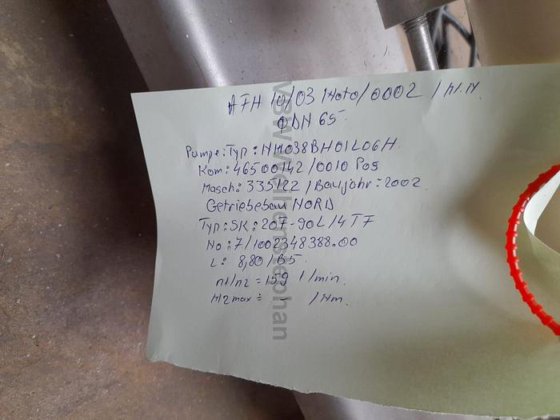 AFH 10/03 Moto/0002 / M.N.
ODN 65
Pumpe: Typ: NM038BH01L06H
Kom: 46500142/0010 Pos
Masch: 335122 / Baujahr: 2002
Getriebebau NORD
Typ: SK: 207-90L/4 TF
No: 7/1002348388.00
i: 8,80/B5
n1/n2 = 159 1/min.
M2max = - / Nm.